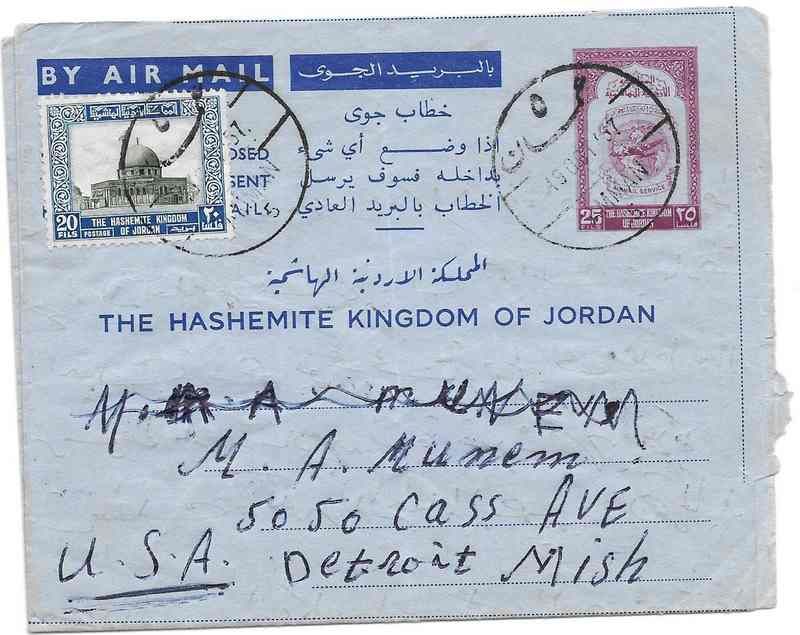 BY AIR MAIL
بالبريد الجوى
خطاب جوى
اذا وضع أي شيء
بداخله فسوف يرسل
الخطاب بالبريد العادي
OSED
SENT
المملكة الاردنية الهاشمية
THE HASHEMITE KINGDOM OF JORDAN
20
FILS
THE HASHEMITE KINGDOM
POSTAGE OF JORDAN
٢٠
فلسا
25
FILS
THE HASHEMITE KINGDOM
OF JORDAN
٢٥
فلسا
M. A. Munem
5050 Cass AVE
Detroit Mish
U.S.A.